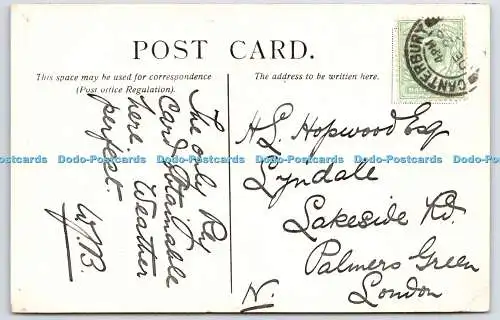 POST CARD.
This space may be used for correspondence
(Post office Regulation).
The address to be written here.
CANTERBURY
The only Ry
Card obtainable
here. Weather
perfect
W.B.
H.G. Hopwood Esq
Lyndale
Lakeside Rd.
Palmers Green
London
N.
Dodo-Postcards Dodo-Postcards Dodo-Postcards Dodo-Postcards Dodo-Postcards